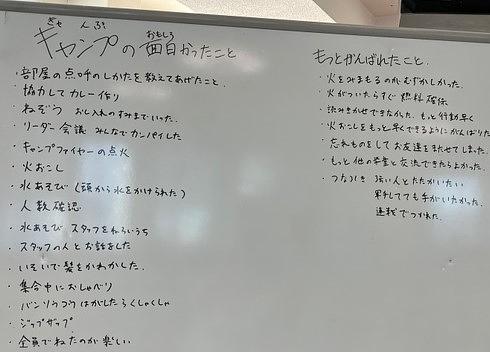 ぎゃ んぷ おもしろ
キャンプの面白かったこと
・部屋の点呼のしかたを教えてあげたこと.
・協力してカレー作り
・ねぞう おし入れのすみまでいった.
・リーダー会議 みんなでカンパイした
・キャンプファイヤーの点火
・火おこし
・水あそび (頭から水をかけられた)
・人数確認
・水あそび スタッフをねらいうち
・スタッフの人とお話をした
・いそいで髪をかわかした.
・集合中におしゃべり
・バンソウコウはがしたらくしゃくしゃ
・ジップザップ
・全員でねたのが楽しい
もっとがんばれたこと.
・火をみまもるのがむずかしかった.
・火がついたらすぐ燃料確保
・決みきかせできなかた. もっと行動早く
・火おこしをもっと早くできるようにがんばりた
・忘れものをしてお友達をまたせてしまった.
・もっと他の学生と交流できたらよかった.
・つなひき 強い人とたたかいたい
手がいたかった.
連戦でつかれた.